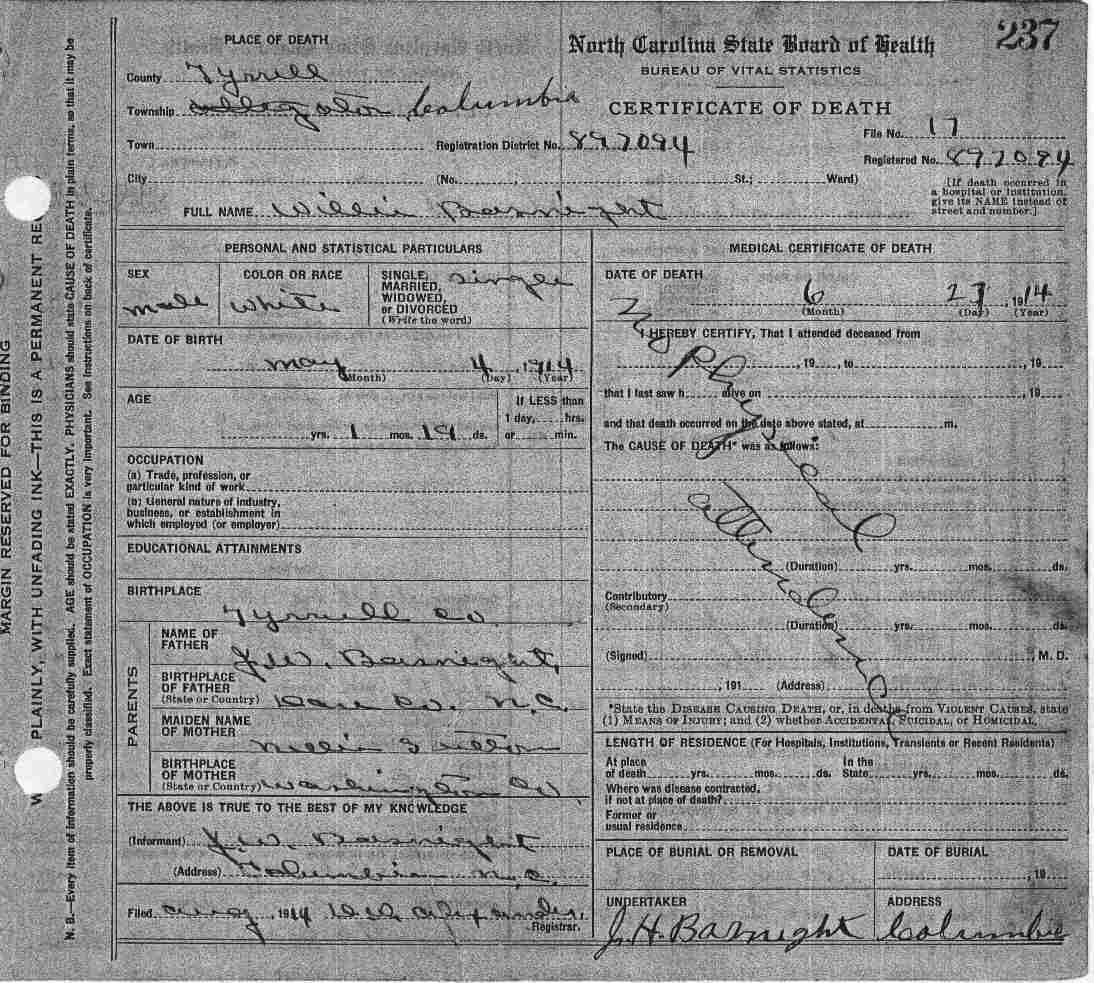 237
PLACE OF DEATH
North Carolina State Board of Health
BUREAU OF VITAL STATISTICS
CERTIFICATE OF DEATH
County Tyrrell
Township Columbia
File No. 17
Town
Registration District No. 897094
Registered No. 897094
City (No. , St.; Ward)
[If death occurred in
a hospital or institution,
give its NAME instead of
street and number.]
FULL NAME Willie Basnight
PERSONAL AND STATISTICAL PARTICULARS
SEX
male
COLOR OR RACE
white
SINGLE, single
MARRIED,
WIDOWED,
or DIVORCED
(Write the word)
DATE OF BIRTH
may 4, 1914
(Month) (Day) (Year)
AGE
yrs. 1 mos. 19 ds.
If LESS than
1 day, hrs.
or min.
OCCUPATION
(a) Trade, profession, or
particular kind of work
(b) General nature of industry,
business, or establishment in
which employed (or employer)
EDUCATIONAL ATTAINMENTS
BIRTHPLACE
Tyrrell Co.
PARENTS
NAME OF
FATHER
J.W. Basnight,
BIRTHPLACE
OF FATHER
(State or Country) Dare Co. N.C.
MAIDEN NAME
OF MOTHER
BIRTHPLACE
OF MOTHER
(State or Country) Washington Co.
THE ABOVE IS TRUE TO THE BEST OF MY KNOWLEDGE
(Informant) J.W. Basnight
(Address) Columbia N.C.
Filed aug, 1914 alexander,
Registrar.
MEDICAL CERTIFICATE OF DEATH
DATE OF DEATH
6 23, 1914
(Month) (Day) (Year)
I HEREBY CERTIFY, That I attended deceased from
, 19 , to , 19
that I last saw h alive on , 19
and that death occurred on the date above stated, at m.
The CAUSE OF DEATH* was as follows:
No Physical attendance
(Duration) yrs. mos. ds.
Contributory
(Secondary)
(Duration) yrs. mos. ds.
(Signed) , M. D.
, 191 (Address)
*State the DISEASE CAUSING DEATH, or, in deaths from VIOLENT CAUSES, state
(1) MEANS OF INJURY; and (2) whether ACCIDENTAL, SUICIDAL, or HOMICIDAL.
LENGTH OF RESIDENCE (For Hospitals, Institutions, Transients or Recent Residents)
At place In the
of death yrs. mos. ds. State yrs. mos. ds.
Where was disease contracted,
if not at place of death?
Former or
usual residence
PLACE OF BURIAL OR REMOVAL
DATE OF BURIAL
, 19
UNDERTAKER
J.H. Basnight
ADDRESS
Columbia
MARGIN RESERVED FOR BINDING
PLAINLY, WITH UNFADING INK—THIS IS A PERMANENT RE
N. B.—Every item of information should be carefully supplied. AGE should be stated EXACTLY. PHYSICIANS should state CAUSE OF DEATH in plain terms, so that it may be
properly classified. Exact statement of OCCUPATION is very important. See instructions on back of certificate.